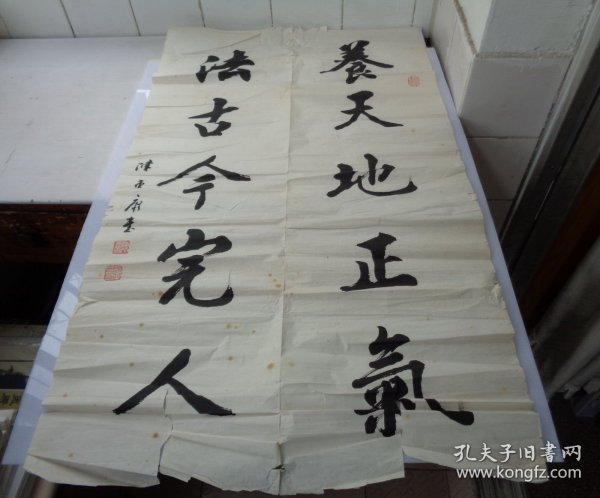 養天地正氣
法古今完人
孔夫子旧书网
www.kongfz.com